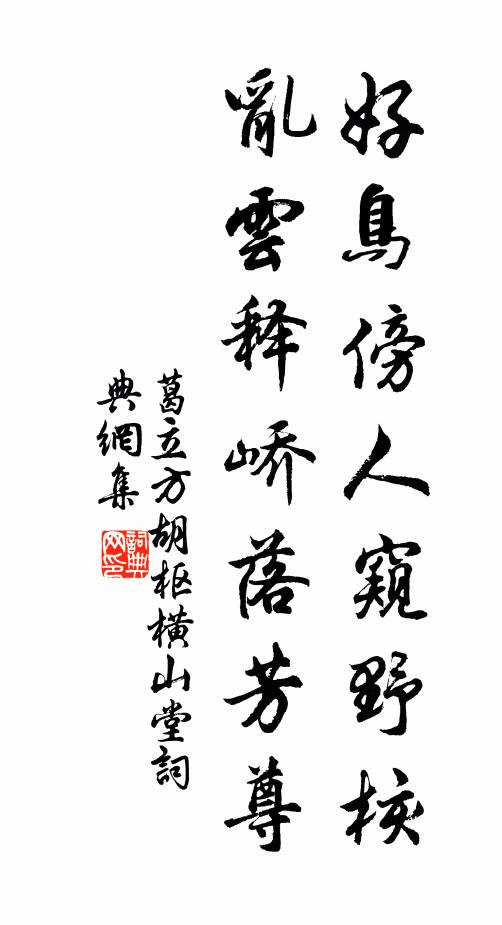 好鳥傍人窺野核
亂雲释嶠落芳尊
葛立方胡枢橫山堂詞
典網集
詞典网印